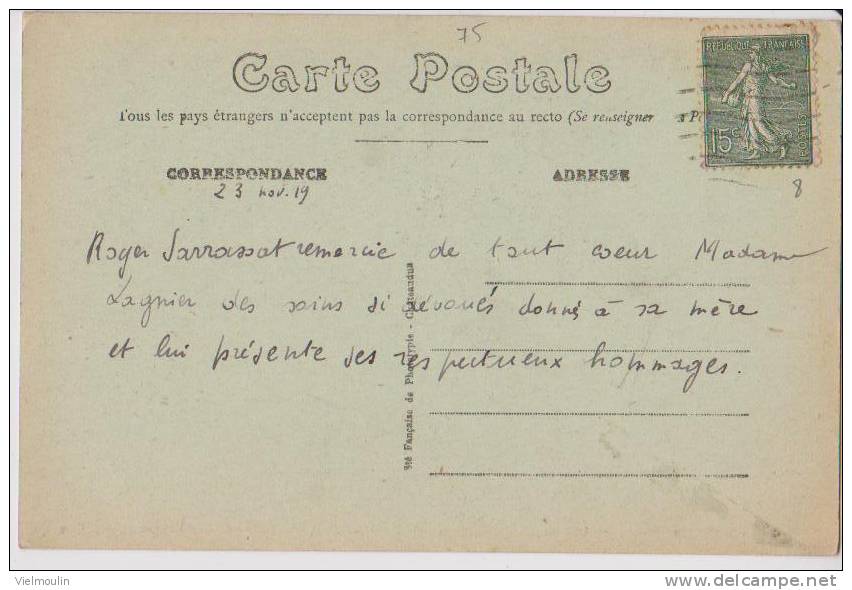 75
Carte Postale
Tous les pays étrangers n'acceptent pas la correspondance au recto (Se renseigner
REPUBLIQUE FRANÇAISE
15c
POSTES
8
CORRESPONDANCE
ADRESSE
23 nov. 19
Roger Sarrassat remercie de tout coeur Madame
Lagnier des soins si dévoués donné à sa mère
et lui présente ses respectueux hommages.
Sté Française de Phototypie - Châteaudun
Vielmoulin
http://www.delcampe.net